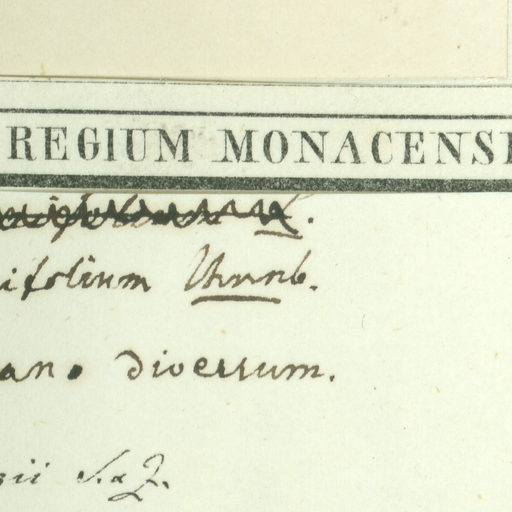 REGIUM MONACENS
ifolium Thunb.
an. diversum.
zii S. a Z.